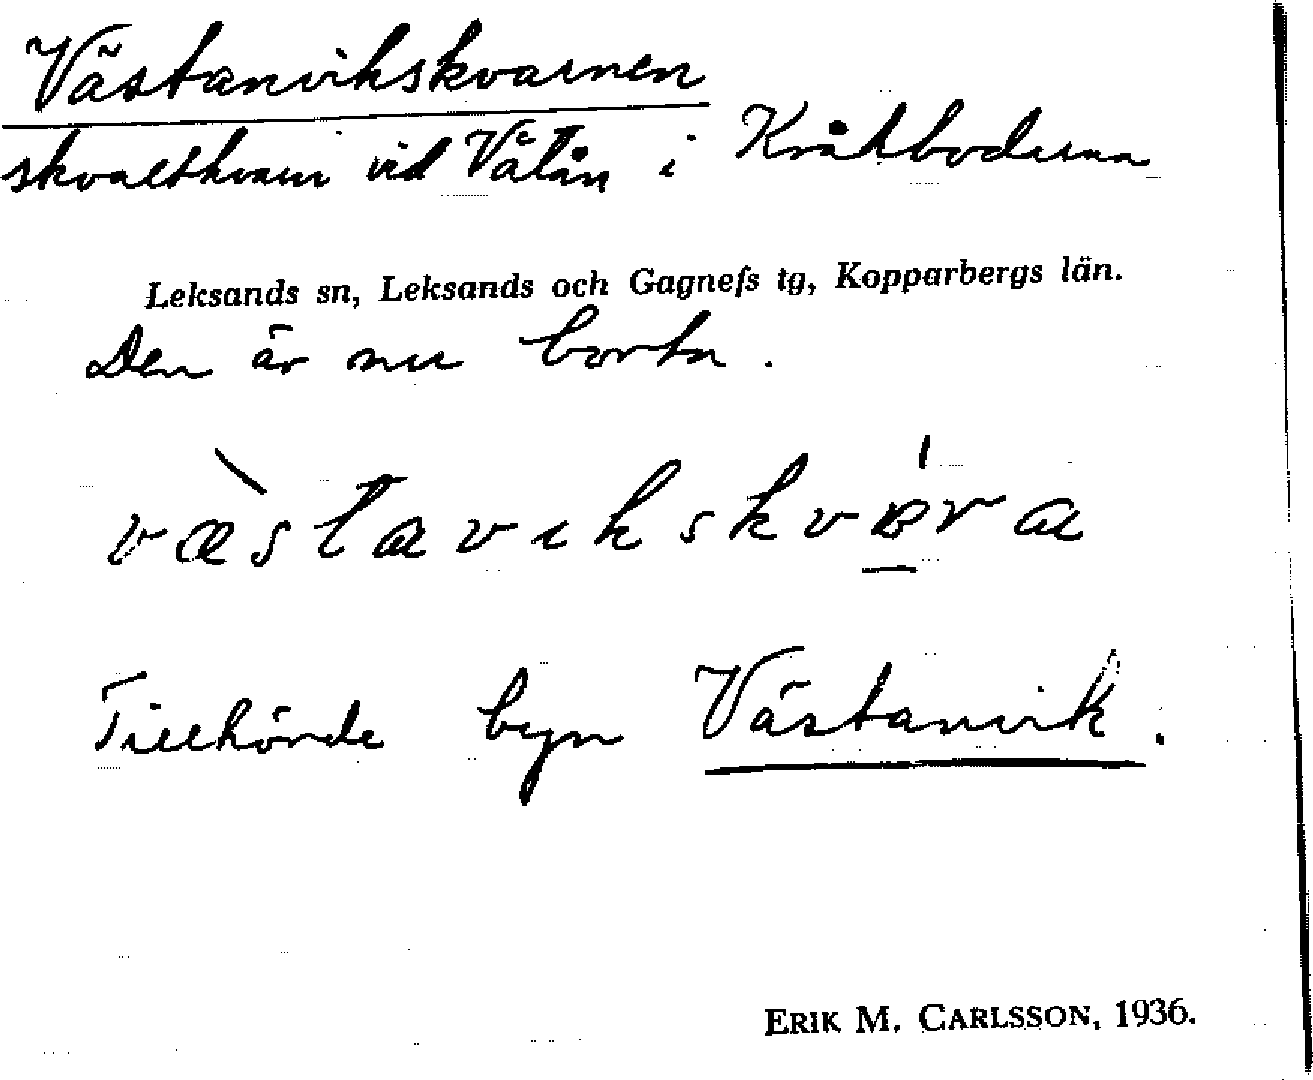 Västanvikskvarnen
skvaltkvarn vid Våtån i Kråkbodarna
Leksands sn, Leksands och Gagnefs tg, Kopparbergs län.
Den är nu borta.
væ̀stavikskvɐ́ra
Tillhörde byn Västanvik.
ERIK M. CARLSSON, 1936.